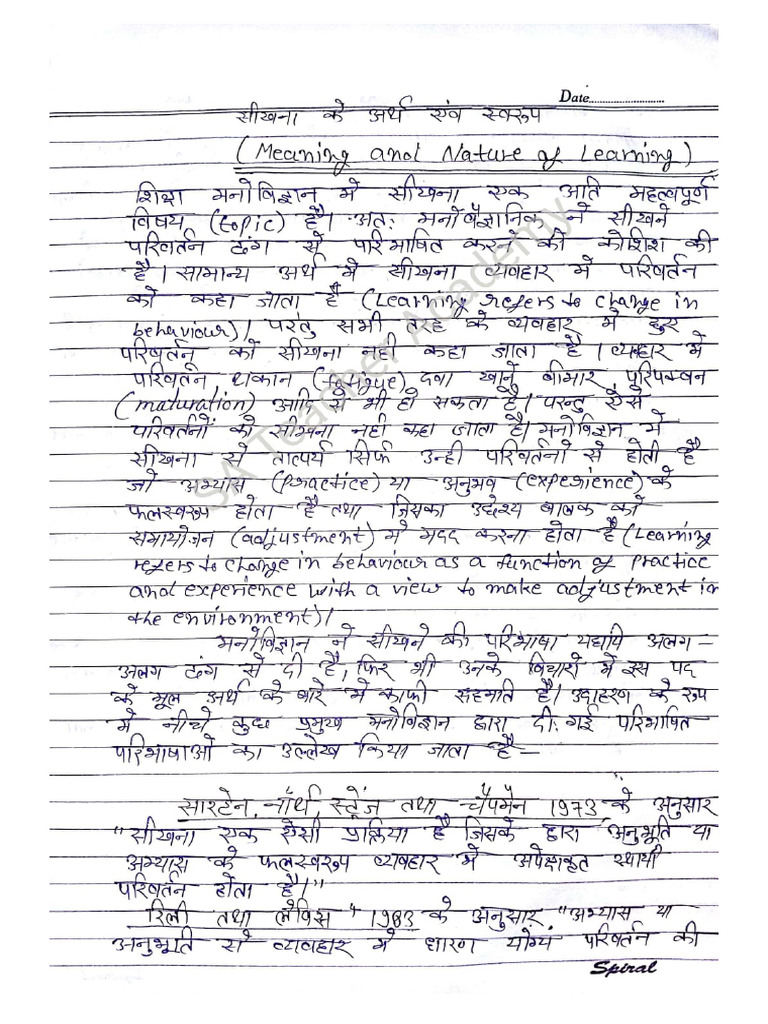 Date
सीखना के अर्थ एंव स्वरूप
(Meaning and Nature of Learning)
शिक्षा मनोविज्ञान में सीखना एक अति महत्वपूर्ण
विषय (topic) है। अतः मनोवैज्ञानिक ने सीखने
परिवर्तन ढंग से परिभाषित करने की कोशिश की
है। सामान्य अर्थ में सीखना व्यवहार में परिवर्तन
को कहा जाता है (Learning refers to change in
behaviour)। परंतु सभी तरह के व्यवहार में हुए
परिवर्तन को सीखना नही कहा जाता है। व्यवहार में
परिवर्तन थकान (fatigue) दवा खाने, बीमार, परिपक्वन
(maturation) आदि से भी हो सकता है। परन्तु ऐसे
परिवर्तनों को सीखना नही कहा जाता है। मनोविज्ञान में
सीखना से तात्पर्य सिर्फ उन्ही परिवर्तनो से होती है
जो अभ्यास (practice) या अनुभव (experience) के
फलस्वरूप होता है तथा जिसका उद्देश्य बालक को
समायोजन (adjustment) में मदद करना होता है (Learning
refers to change in behaviour as a function of practice
and experience with a view to make adjustment in
the environment)।
मनोविज्ञान ने सीखने की परिभाषा यद्यपि अलग-
अलग ढंग से दी है, फिर भी उनके विचारो में इस पद
के मूल अर्थ के बारे में काफी सहमति है। उदाहरण के रूप
में नीचे कुछ प्रमुख मनोविज्ञान द्वारा दी गई परिभाषित
परिभाषाओं का उल्लेख किया जाता है-
सारटेन, नॉर्थ, स्ट्रेंज तथा चैपमैन 1973 के अनुसार
"सीखना एक ऐसी प्रक्रिया है जिसके द्वारा अनुभूति या
अभ्यास के फलस्वरूप व्यवहार में अपेक्षाकृत स्थायी
परिवर्तन होता है।"
रिली तथा लेविस" 1983 के अनुसार "अभ्यास या
अनुभूति से व्यवहार में धारण योग्यं परिवर्तन की
Spiral
SA Teacher Academy